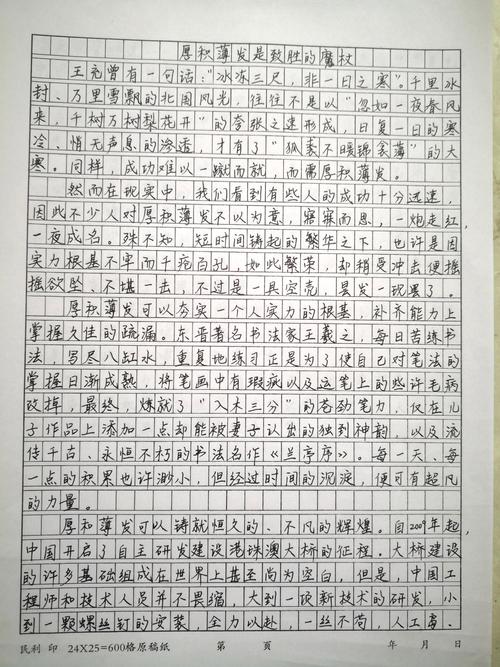 厚积薄发是致胜的魔杖
王充曾有一句话："冰冻三尺，非一日之寒"。千里冰
封、万里雪飘的北国风光，往往不是以"忽如一夜春风
来，千树万树梨花开"的夸张之速形成，日复一日的寒
冷、悄无声息的渗透，才有了"狐裘不暖锦衾薄"的大
寒。同样，成功难以一蹴而就，而需厚积薄发。
然而在现实中，我们看到有些人的成功十分迅速，
因此不少人对厚积薄发不以为意，寤寐而思，一炮走红，
一夜成名。殊不知，短时间铸起的繁华之下，也许是因
实力根基不牢而千疮百孔，如此繁荣，却稍受冲击便摇
摇欲坠、不堪一击，不过是一具空壳，昙发一现罢了。
厚积薄发可以夯实一个人实力的根基，补齐能力上
掌握久佳的疏漏。东晋著名书法家王羲之，每日苦练书
法，写尽八缸水，重复地练习正是为了使自己对笔法的
掌握日渐成熟，将笔画中有瑕疵以及运笔上的些许毛病
改掉，最终，炼就了"入木三分"的苍劲笔力，仅在儿
子作品上添加一点却能被妻子认出的独到神韵，以及流
传千古、永恒不朽的书法名作《兰亭序》。每一天、每
一点的积累也许渺小，但经过时间的沉淀，便可有超凡
的力量。
厚积薄发可以铸就恒久的、不凡的辉煌。自2009年起，
中国开启了自主研发建设港珠澳大桥的征程。大桥建设
的许多基础组成在世界上甚至尚为空白，但是，中国工
程师和技术人员并不畏缩，大到一项新技术的研发，小
到一颗螺丝钉的安装，全力以赴，一丝不苟，人工岛、
民利 印 24X25=600格原稿纸 第 頁 年 月 日